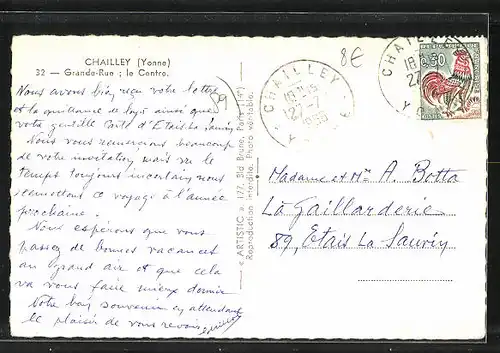 CHAILLEY (Yonne)
32 — Grande-Rue ; le Centre.
Nous avons bien reçu votre lettre
et la quittance de loyer ainsi que
votre gentille Carte d'Etais la Sauvin
Nous vous remercions beaucoup
de votre invitation mais vu le
temps toujours incertain nous
remettons ce voyage à l'année
prochaine.
Nous espérons que vous
passez de bonnes vacances
au grand air et que cela
va vous faire mieux dormir
Notre bon souvenir en attendant
le plaisir de vous revoir
« ARTISTIC », 177, Bld Brune, Paris (14e)
Reproduction interdite. Photo véritable.
8€
CHAILLEY
18H15
27-7
1966
YONNE
CHAILLEY
18H
27
0,30
Madame et Mr A. Botta
La Gaillarderie
89, Etais La Sauvin